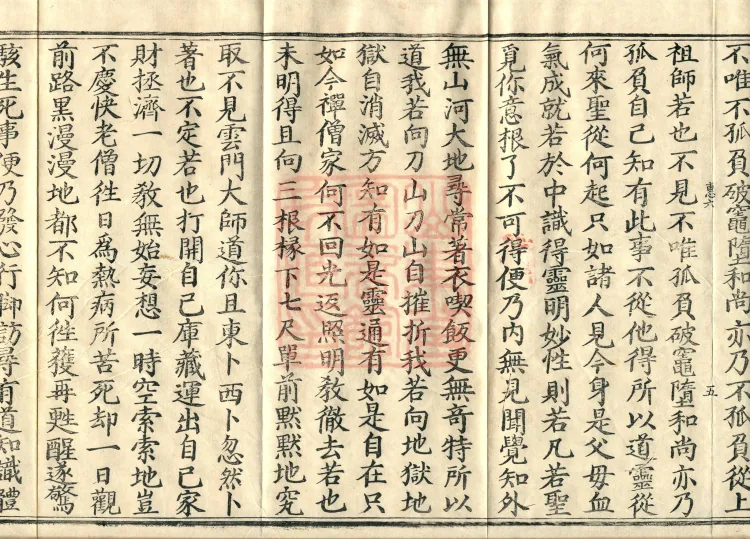 不唯不孤負破竈墮和尚亦乃不孤負從上
祖師若也不見不唯孤負破竈墮和尚亦乃
孤負自己知有此事不從他得所以道靈從
何來聖從何起只如諸人見今身是父母血
氣成就若於中識得靈明妙性則若凡若聖
覓你意根了不可得便乃內無見聞覺知外
無山河大地尋常著衣喫飯更無奇特所以
道我若向刀山刀山自摧折我若向地獄地
獄自消滅方知有如是靈通有如是自在只
如今禪僧家何不回光返照明教徹去若也
未明得且向三根椽下七尺單前默默地究
取不見雲門大師道你且東卜西卜忽然卜
著也不定若也打開自己庫藏運出自己家
財拯濟一切教無始妄想一時空索索地豈
不慶快老僧徃日為熱病所苦死却一日觀
前路黑漫漫地都不知何徃獲再甦醒遂驚
駭生死事便乃發心行脚訪尋有道知識體
惠六
五